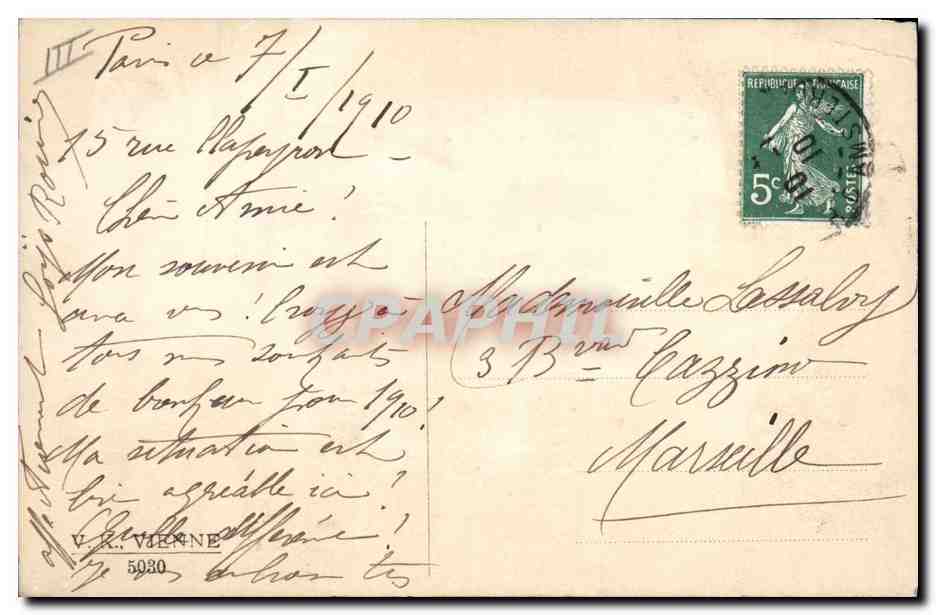 III
Paris ce 7/I/1910
15 rue Clapeyron
Chère Amie!
Mon souvenir est
avec vous! Croyez à
tous mes souhaits
de bonheur pour 1910!
Ma situation est
bien agréable ici!
Quelle différence!
Je vous embrasse très
affectueusement
Mademoiselle Lassalvy
3 Bvard Cazzino
Marseille
REPUBLIQUE FRANÇAISE
5c
POSTES
10
10
AMSTER
CPAPHIL
V. K., VIENNE
5030